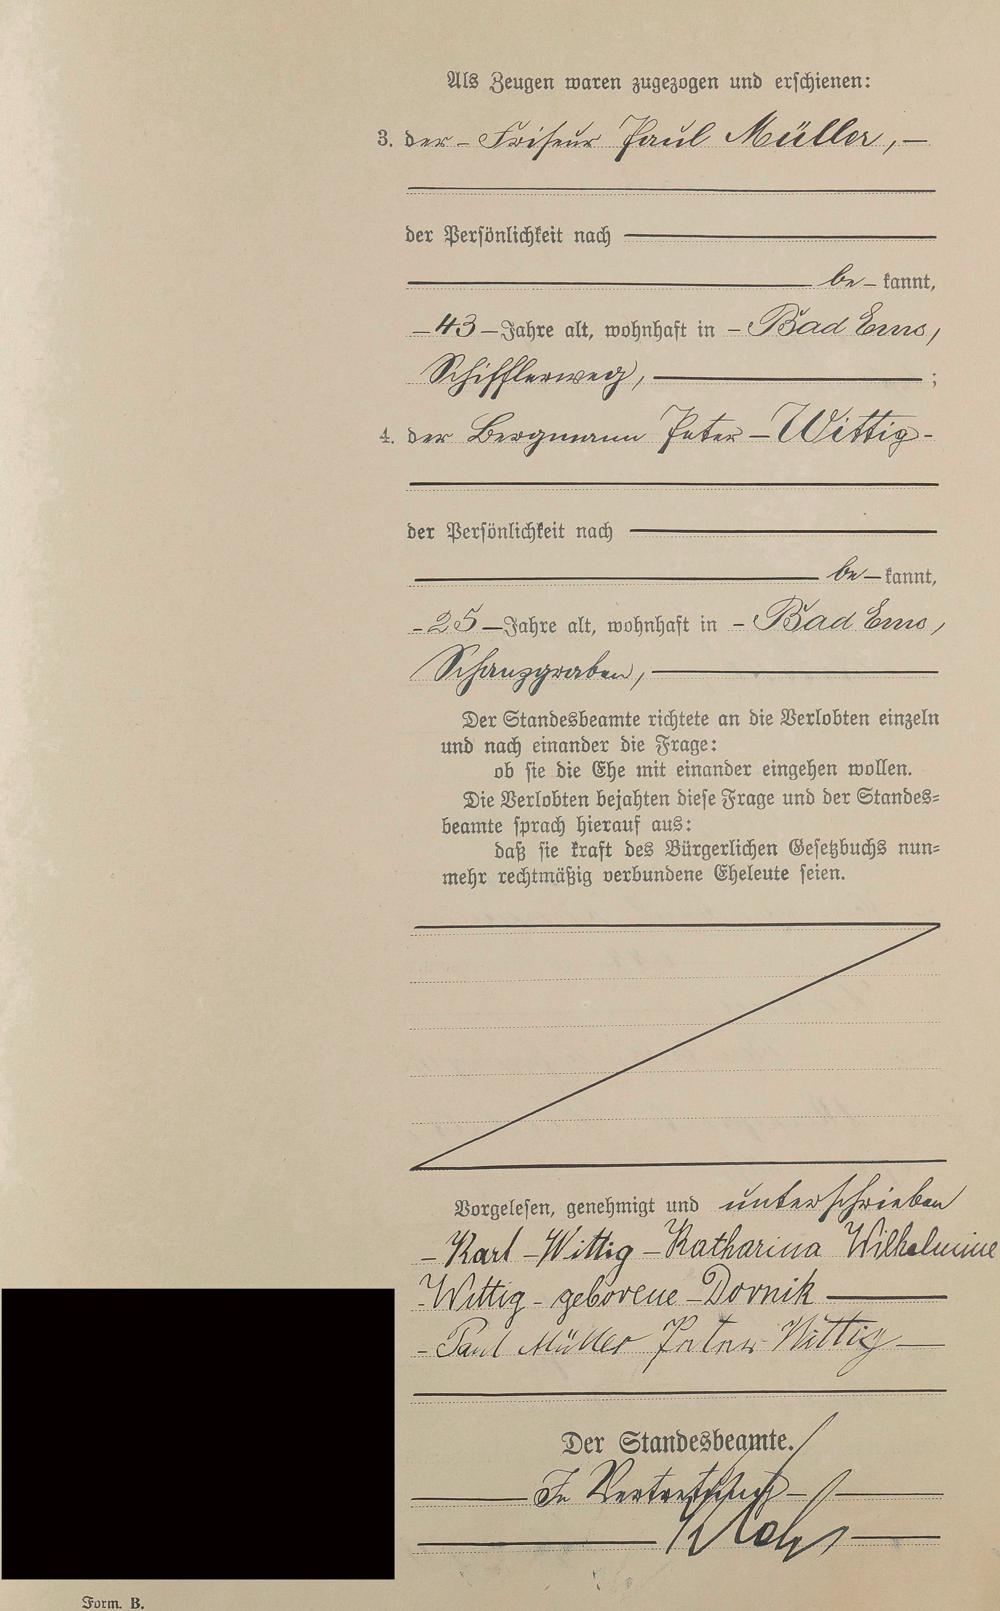 Als Zeugen waren zugezogen und erschienen:
3. der - Friseur Paul Müller, -
der Persönlichkeit nach
be - kannt,
- 43 - Jahre alt, wohnhaft in - Bad Ems,
Schifflerweg, ;
4. der Bergmann Peter - Wittig -
der Persönlichkeit nach
be - kannt,
- 25 - Jahre alt, wohnhaft in - Bad Ems,
Schanzgraben,
Der Standesbeamte richtete an die Verlobten einzeln
und nach einander die Frage:
ob sie die Ehe mit einander eingehen wollen.
Die Verlobten bejahten diese Frage und der Standes-
beamte sprach hierauf aus:
daß sie kraft des Bürgerlichen Gesetzbuchs nun-
mehr rechtmäßig verbundene Eheleute seien.
Vorgelesen, genehmigt und unterschrieben
- Karl - Wittig - Katharina Wilhelmine
- Wittig - geborene - Dornik
- Paul Müller Peter Wittig -
Der Standesbeamte.
In Vertretung -
Form. B.